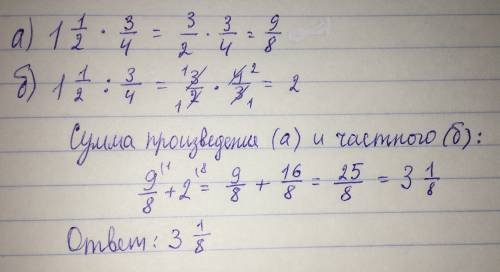 а) 1 1/2 · 3/4 = 3/2 · 3/4 = 9/8
б) 1 1/2 : 3/4 = ¹3/2₁ · 4²/3₁ = 2
Сумма произведения (а) и частного (б):
9/8 ⁽¹ + 2 ⁽⁸ = 9/8 + 16/8 = 25/8 = 3 1/8
Ответ: 3 1/8